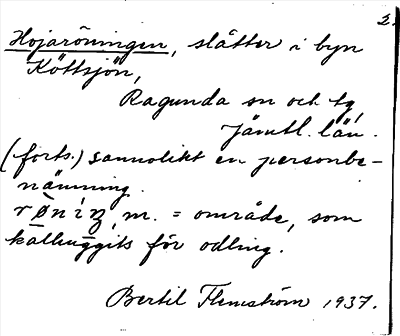 2.
Hojaröningen, slåtter i byn
Köttsjön,
Ragunda sn och tg,
Jämtl. län.
(forts.) sannolikt en personbe-
nämning.
rø̀níŋ, m. = område, som
kalhuggits för odling.
Bertil Flemström 1937.